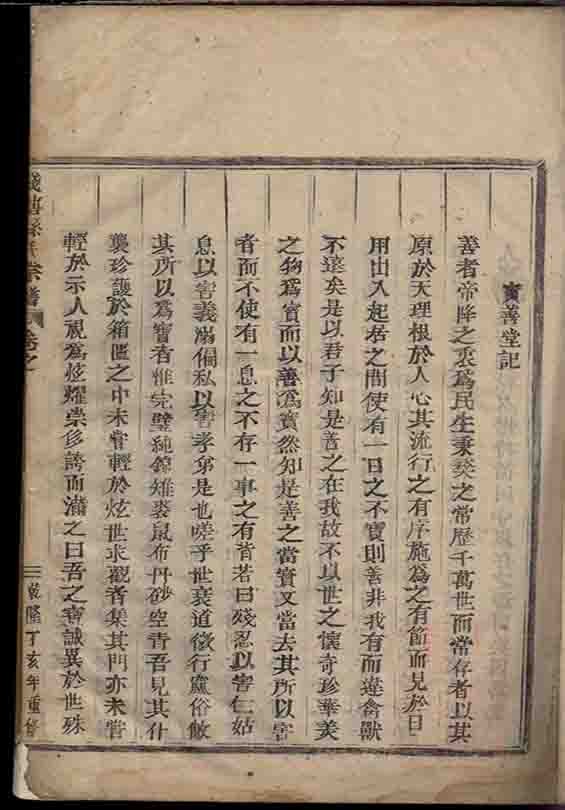 寶善堂記
善者帝降之衷爲民生秉彝之常歷千萬世而常存者以其
原於天理根於人心其流行之有序施爲之有節而見於日
用出入起居之間使有一日之不寶則善非我有而違禽獸
不遠矣是以君子知是善之在我故不以世之懷奇珍華美
之物爲寶而以善爲寶然知是善之當寶又當去其所以害
者而不使有一息之不存一事之有背若曰殘忍以害仁姑
息以害義溺偏私以害孝弟是也嗟乎世衰道微行虛俗敝
其所以爲寶者惟完璧純錦雉裘鼠布丹砂空青吾見其什
襲珍護於箱匱之中未嘗輕於炫世求觀者集其門亦未嘗
輕於示人視爲炫耀崇侈誇而瀟之曰吾之寶誠異於世殊
孫氏宗譜 卷之
乾隆丁亥年重修